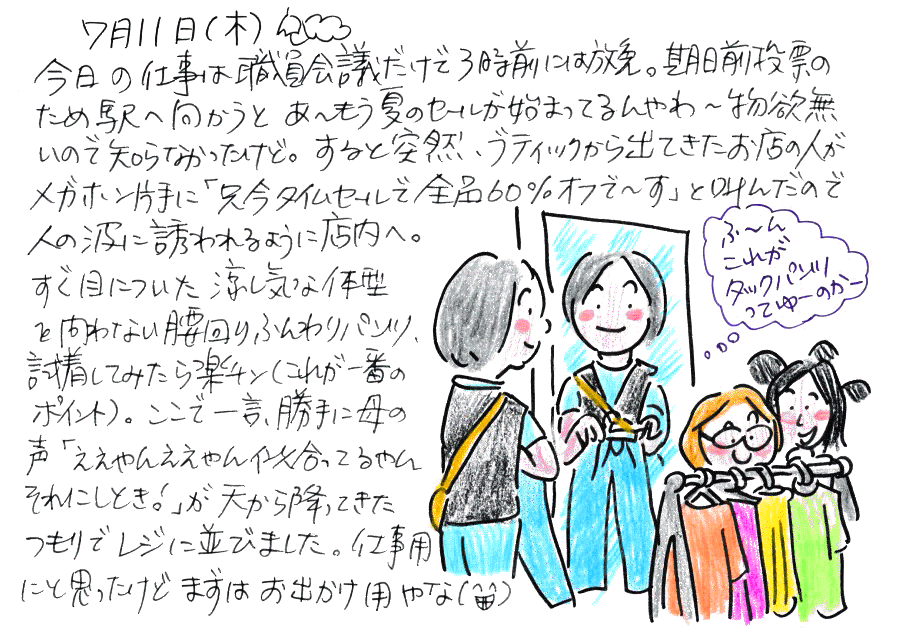 7月11日(木)
今日の仕事は職員会議だけで3時前には放免。期日前投票の
ため駅へ向かうと あ〜もう夏のセールが始まってるんやわ〜物欲無
いので知らなかったけど。すると突然、ブティックから出てきたお店の人が
メガホン片手に「只今タイムセールで全品60%オフで〜す」と叫んだので
人の波に誘われるように店内へ。
すぐ目についた涼し気な体型
を問わない腰回りふんわりパンツ、
試着してみたら楽チン(これが一番の
ポイント)。ここで一言、勝手に母の
声「ええやんええやん似合ってるやん
それにしとき!」が天から降ってきた
つもりでレジに並びました。仕事用
にと思ったけどまずはお出かけ用やな(笑)
ふ〜ん
これが
タックパンツ
ってゆーのかー